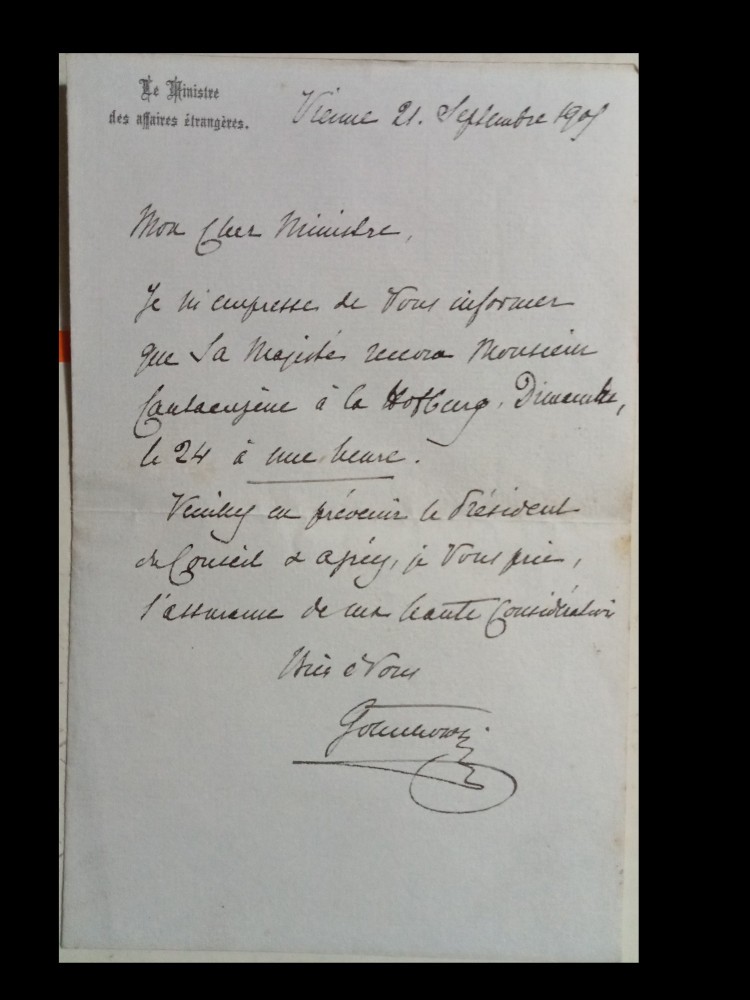 Le Ministre
des affaires étrangères.
Vienne 21. Septembre 1905
Mon cher Ministre,
Je m'empresse de Vous informer
que Sa Majesté recevra Monsieur
Cantacuzène à la Hofburg, Dimanche,
le 24 à une heure.
Veuillez en prévenir le Président
du Conseil & agréez, je Vous prie,
l'assurance de ma haute Considération
Bien à Vous
Gołuchowski